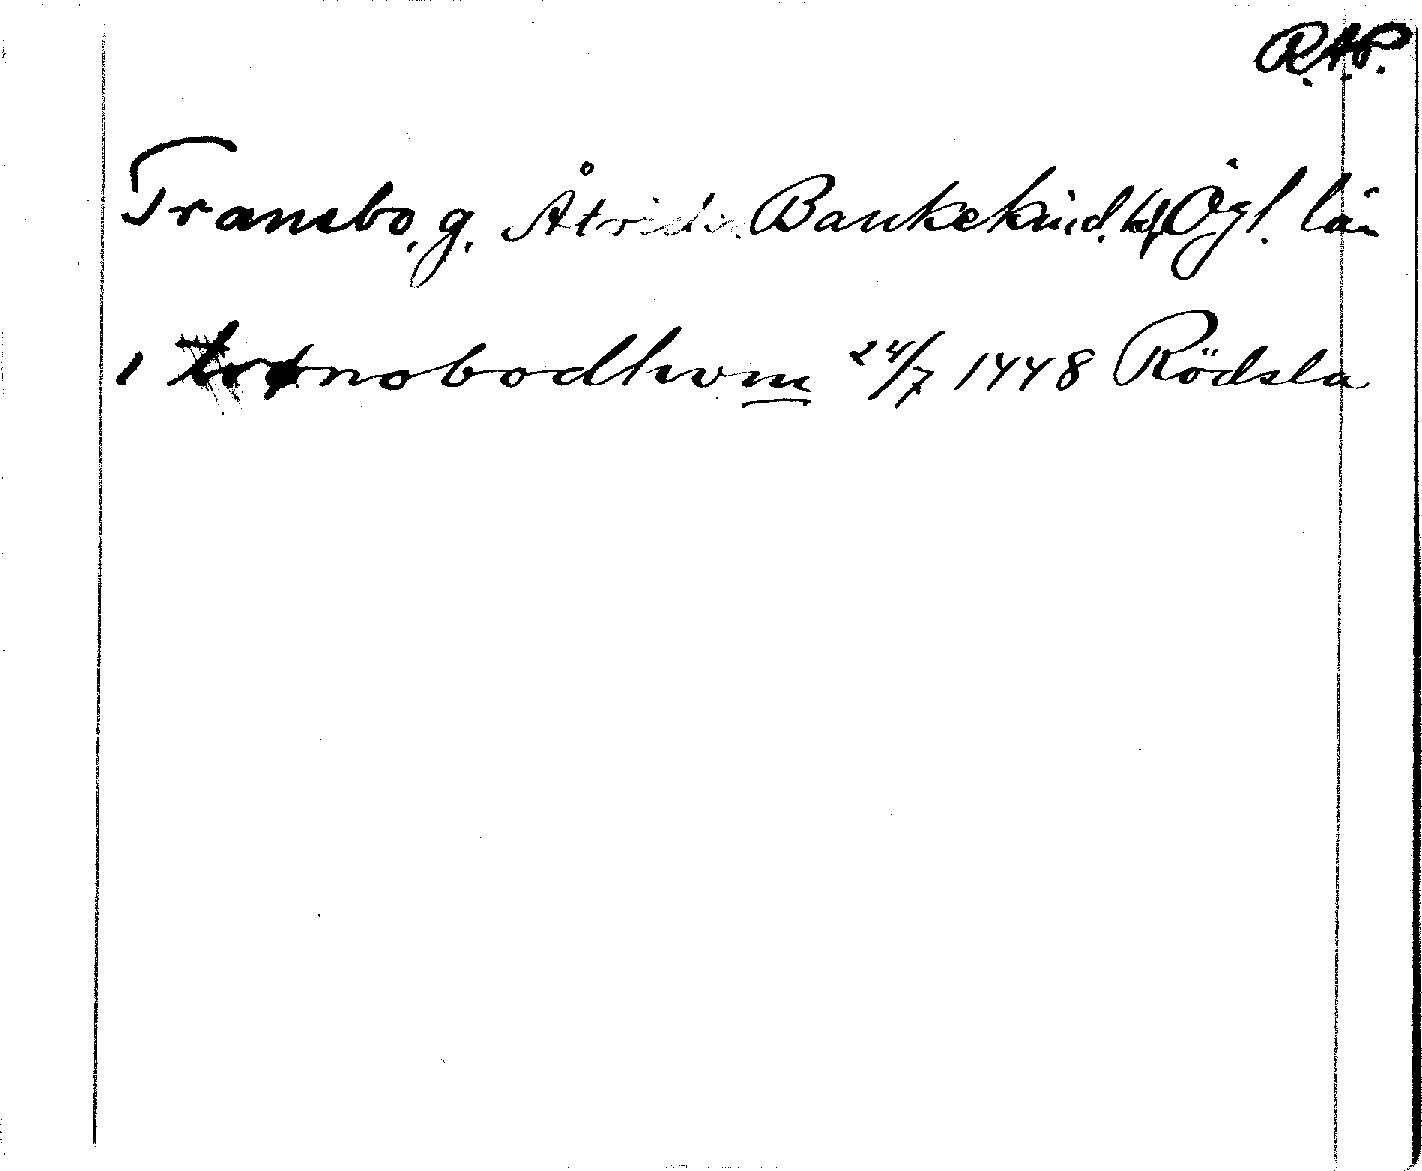 R.A.P.
Tranebo. g. Åtvids Bankekind. hd, Ögl. län
i trønobodhwm 24/7 1448 Rödsla